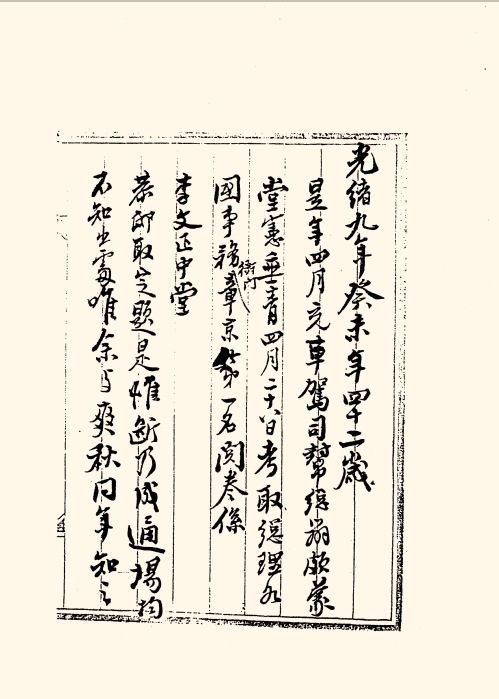 光緒九年癸未年四十二歲
是年四月充車駕司幫總辦頗蒙
堂憲垂青四月二十八日考取總理各
國事務衙門章京第一名閱卷係
李文正中堂
恭邸取定題是惟斷乃成通場均
不知出處唯余與爽秋同年知之